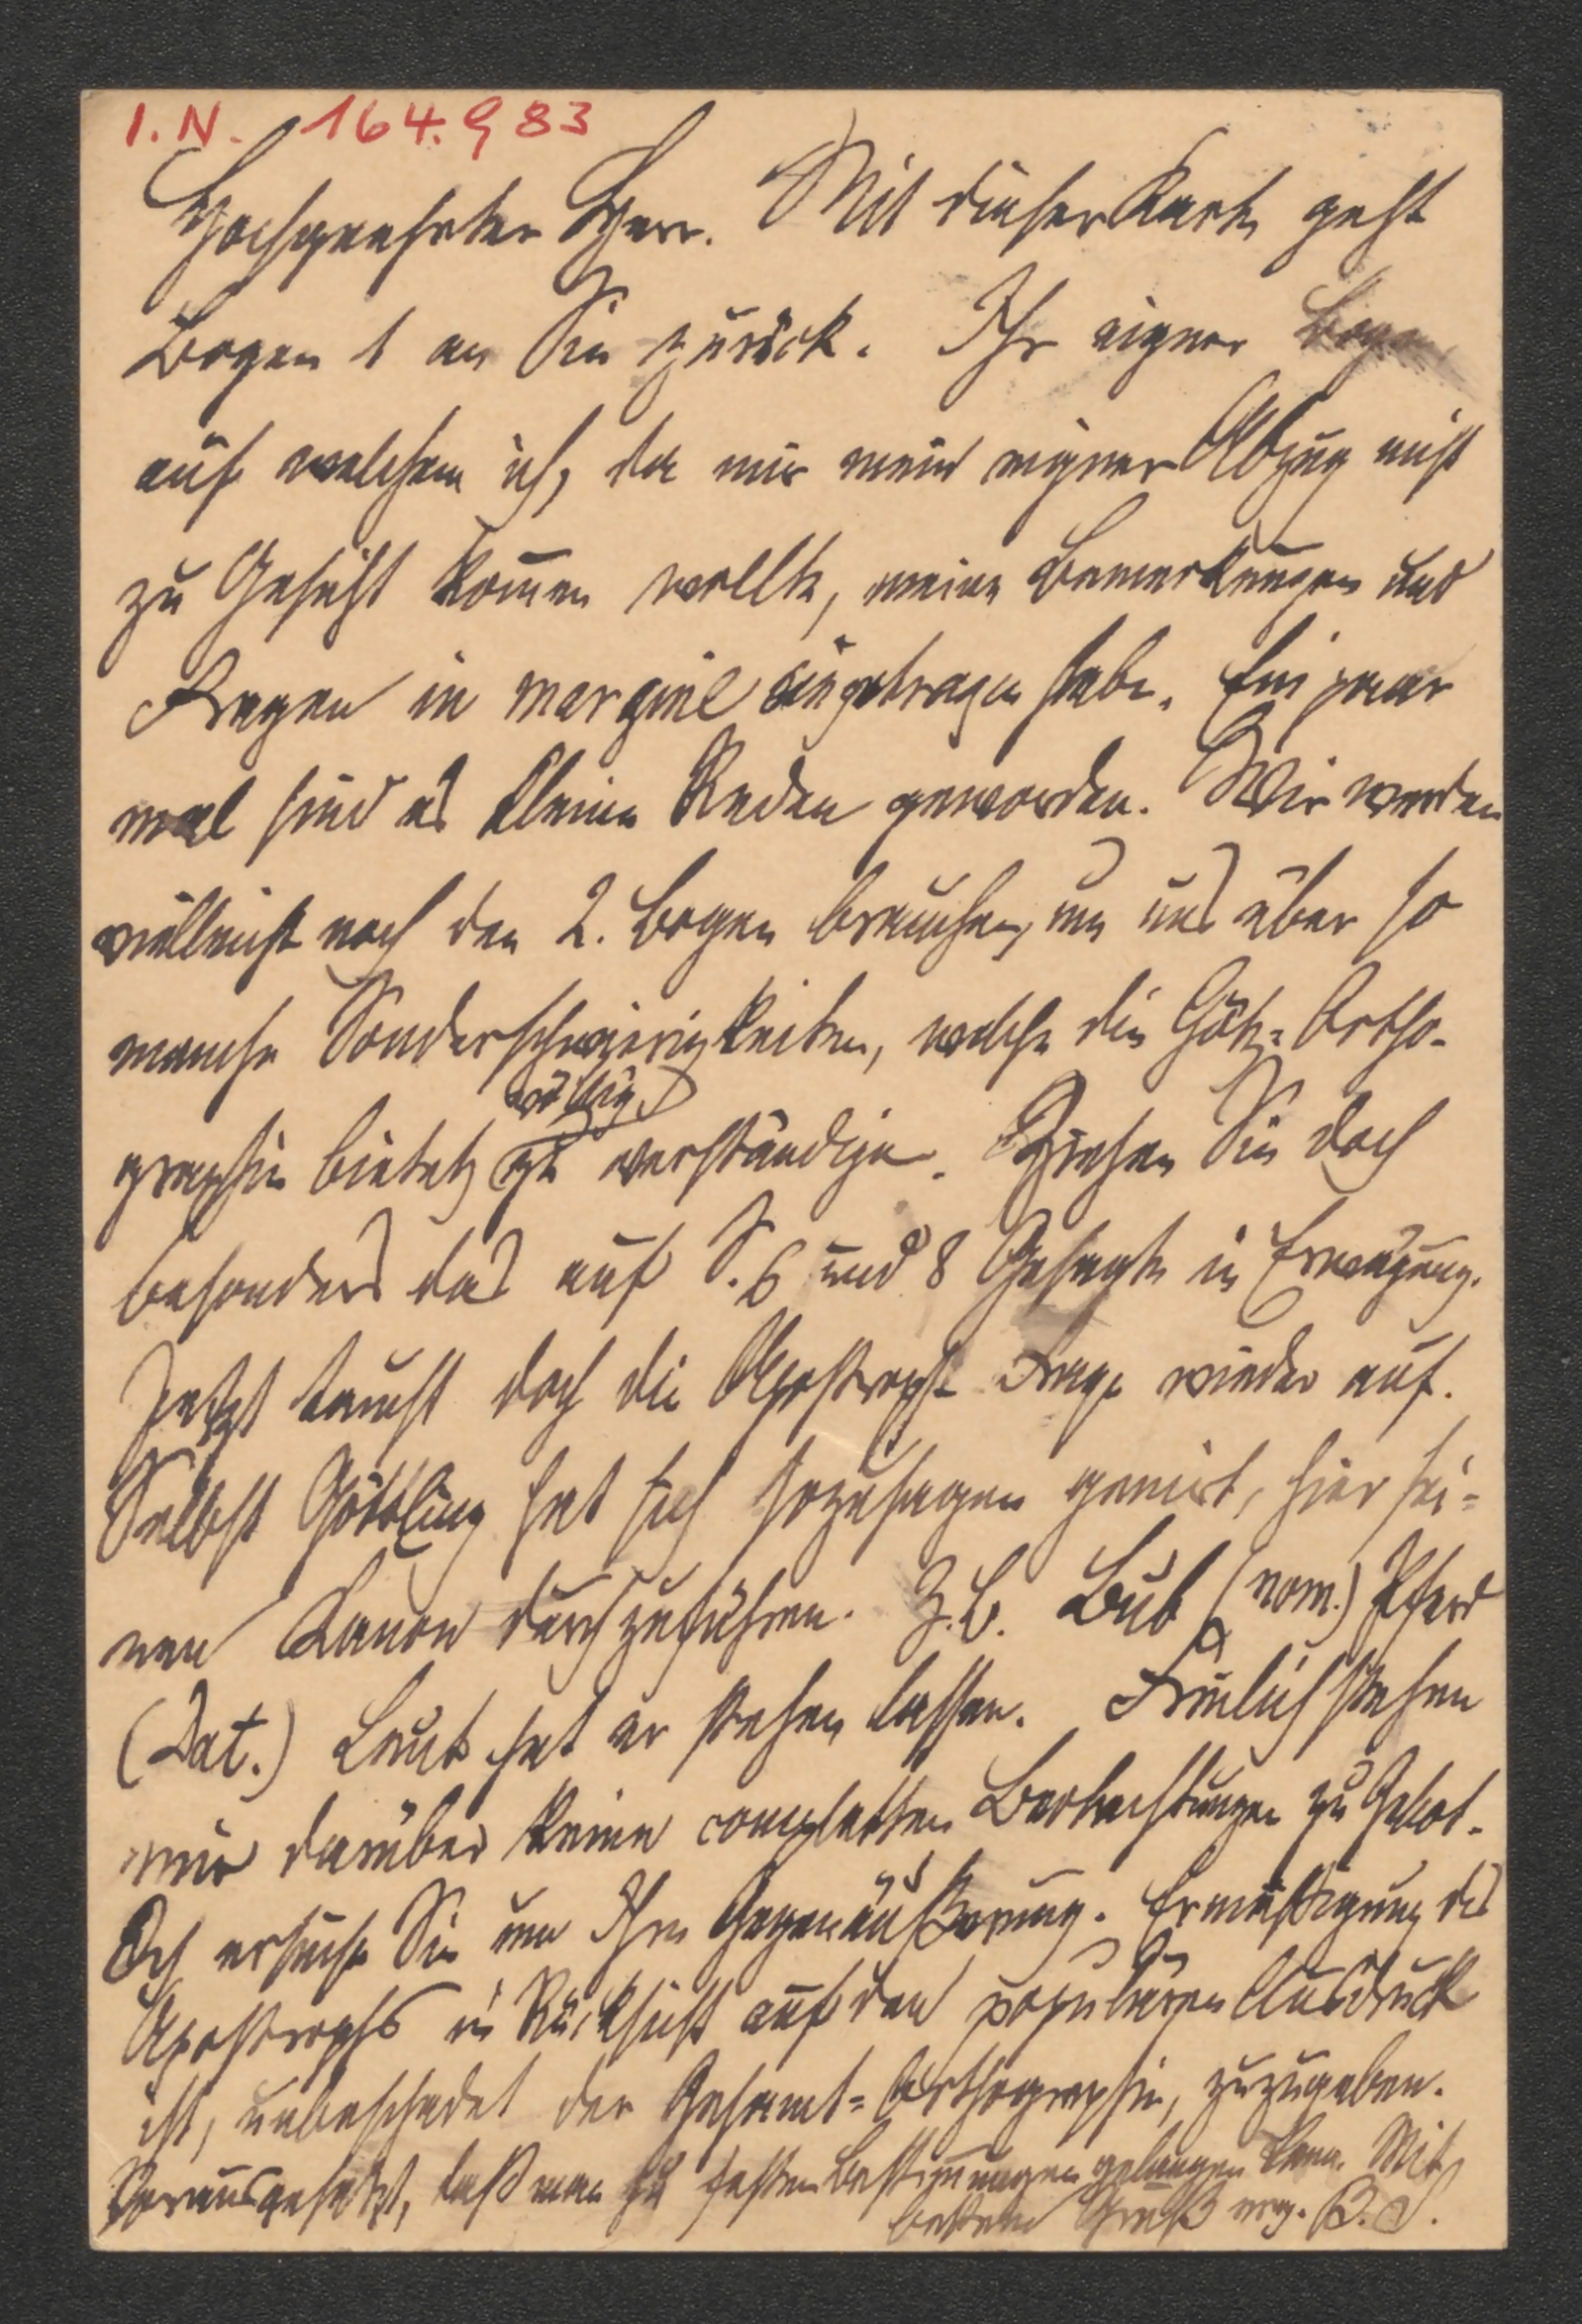 I.N. 164.983
Hochgeehrter Herr. Mit dieser Karte geht
Bogen 1 an Sie zurück. Ihr eigner Bogen
auf welchem ich, da mir mein eigner Abzug nicht
zu Gesicht kom̄en wollte, meine Bemerkungen und
Fragen in margine eingetragen habe. Ein paar
mal sind es kleine Reden geworden. Wir werden
vielleicht noch den 2. Bogen brauchen, um uns über so
manche Sonderschwierigkeiten, welche die Götz-Ortho-
völlig
graphie bietet, zu verständigen. Ziehen Sie doch
besonders das auf S. 6 und 8 Gesagte in Erwägung.
Jetzt taucht doch die Apostroph-Frage wieder auf.
Selbst Göttling hat sich sozusagen genirt, hier sei-
nen Kanon durchzuführen. Z.B. Bub (nom.) Pferd
(Dat.) Leut hat er stehen lassen. Freilich stehen
mir darüber keine completten Beobachtungen zu Gebot.
Ich ersuche Sie um Ihre Gegenäußerung. Ermäßigung des
Apostrophs in Rücksicht auf den populären Ausdruck
ist, unbeschadet der Gesamt-Orthographie, zuzugeben.
Vorausgesetzt, daß man zu festen Bestim̄ungen gelangen kann. Mit
bestem Gruß erg. B.S.